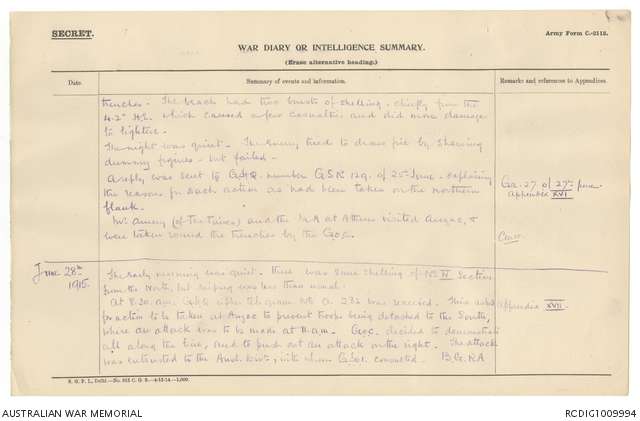 SECRET.
Army Form C.-2118.
WAR DIARY OR INTELLIGENCE SUMMARY.
(Erase alternative heading.)
Date.
Summary of events and information.
Remarks and references to Appendices.
trenches. The beach had two bursts of shelling, chiefly from the
4.2" which caused a few casualties and did more damage
to lighters.
The night was quiet. The enemy tried to draw fire by showing
dummy figures - but failed.
A reply was sent to GHQ. number G.S.R. 129 of 25th June - explaining
the reasons for such action as had been taken on the northern
flank.
Ga. 27 of 27th June
appendix XVI
Mr. (of the Times) and the M.A at Athens visited Anzac, &
were taken round the trenches by the G.O.C.
June 28th
1915.
The early morning was quiet. There was some shelling of No IV Section
from the North, but sniping was less than usual.
At 8.30. am. GHQ cipher telegram No 232 was received. This asked
appendix XVII.
for action to be taken at Anzac to prevent troops being detached to the South,
where an attack was to be made at 11 a.m. G.O.C. decided to demonstrate
all along the line, and to push out an attack on the right. The attack
was entrusted to the Aust. Divn., with whom consulted. B.G. RA
S. G. P. I., Delhi.
AUSTRALIAN WAR MEMORIAL
RCDIG1009994